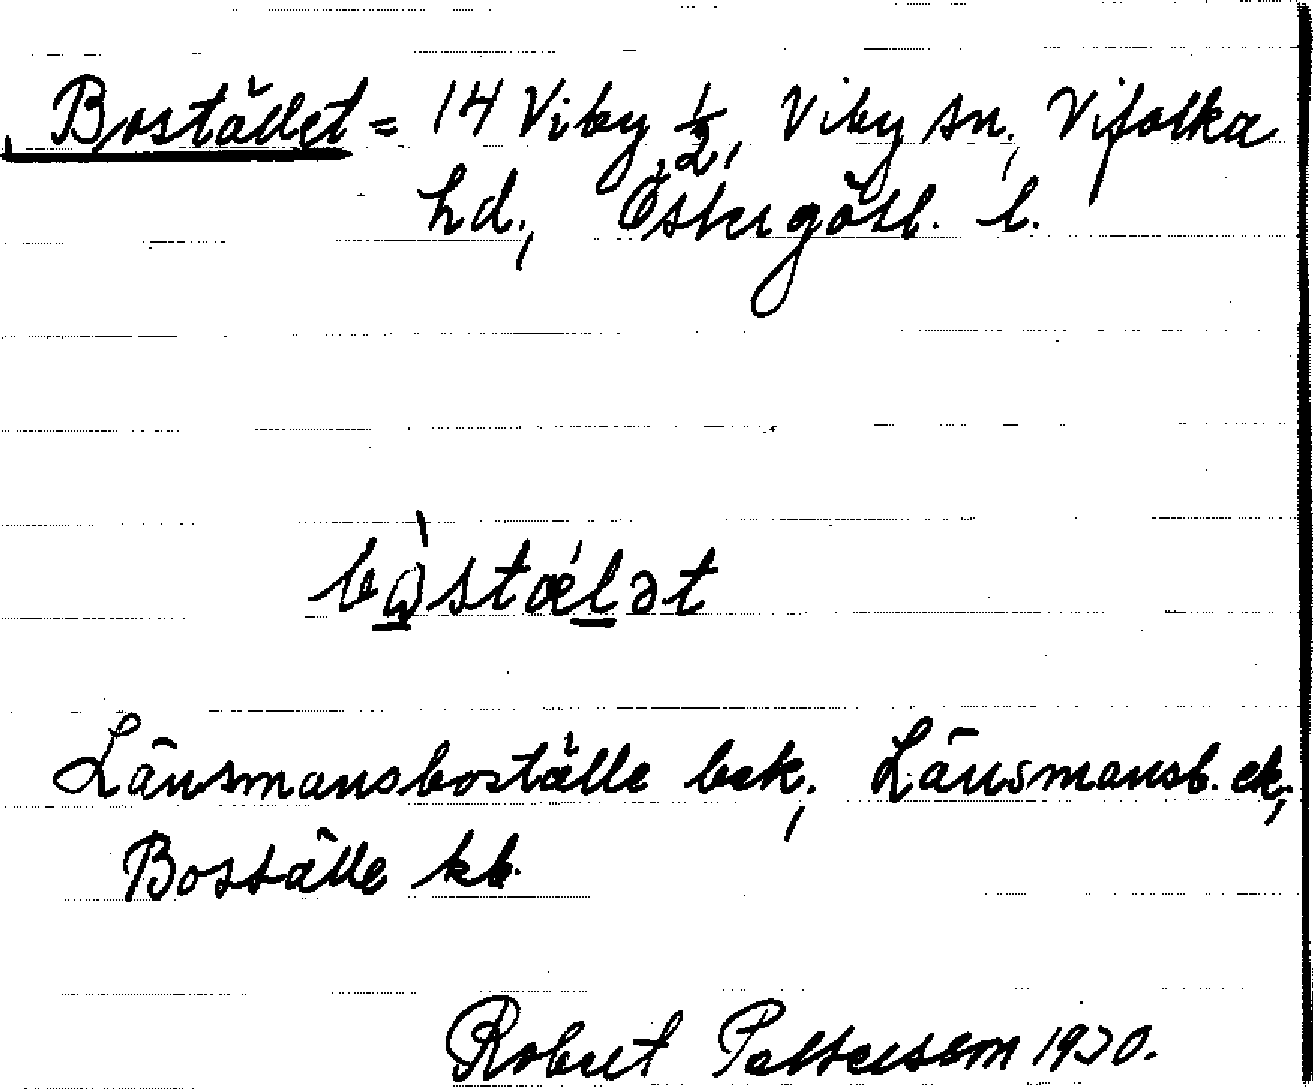 Bostället = 14 Viby 1/2, Viby sn, Vifolka
hd., Östergötl. l.
Länsmansboställe bek; Länsmansb. ek;
Boställe kb.
Robert Pettersson 1930.